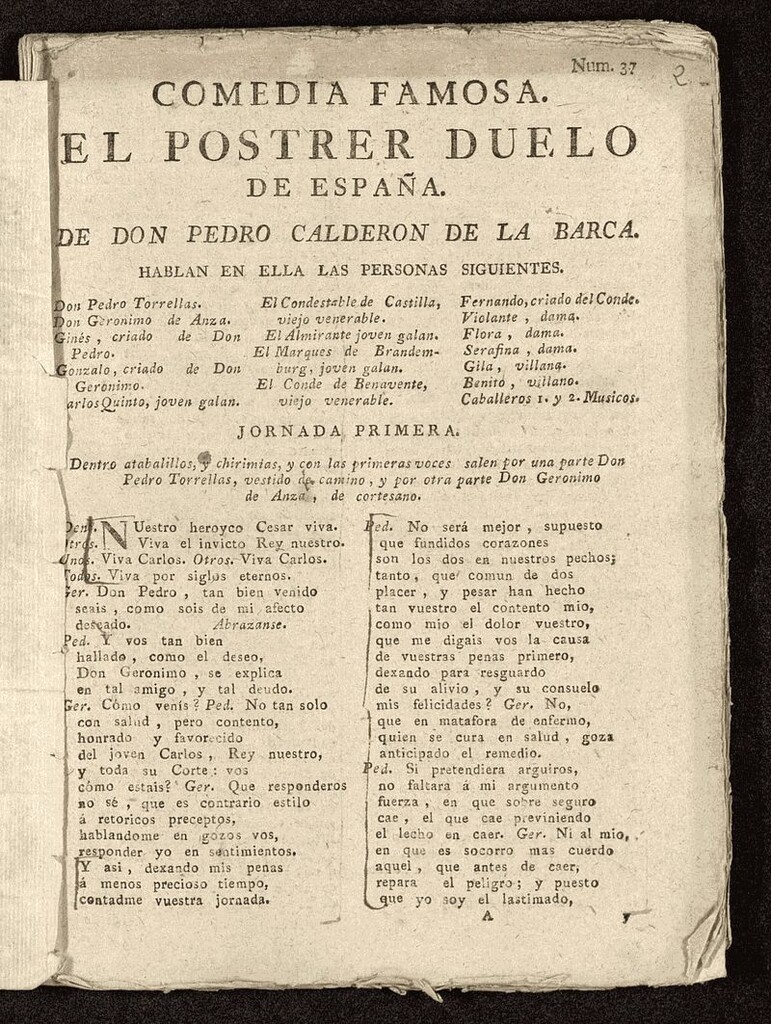 Num. 37
2
COMEDIA FAMOSA.
EL POSTRER DUELO
DE ESPAÑA.
DE DON PEDRO CALDERON DE LA BARCA.
HABLAN EN ELLA LAS PERSONAS SIGUIENTES.
Don Pedro Torrellas.
Don Geronimo de Anza.
Ginés, criado de Don
Pedro.
Gonzalo, criado de Don
Geronimo.
arlos Quinto, joven galan.
El Condestable de Castilla,
viejo venerable.
El Almirante joven galan.
El Marques de Brandem-
burg, joven galan.
El Conde de Benavente,
viejo venerable.
Fernando, criado del Conde.
Violante, dama.
Flora, dama.
Serafina, dama.
Gila, villana.
Benito, villano.
Caballeros 1. y 2. Musicos.
JORNADA PRIMERA.
Dentro atabalillos, y chirimias, y con las primeras voces salen por una parte Don
Pedro Torrellas, vestido de camino, y por otra parte Don Geronimo
de Anza, de cortesano.
Dent. NUestro heroyco Cesar viva.
Otros. Viva el invicto Rey nuestro.
Unos. Viva Carlos. Otros. Viva Carlos.
Todos. Viva por siglos eternos.
Ger. Don Pedro, tan bien venido
seais, como sois de mi afecto
deseado. Abrazanse.
Ped. Y vos tan bien
hallado, como el deseo,
Don Geronimo, se explica
en tal amigo, y tal deudo.
Ger. Cómo venís? Ped. No tan solo
con salud, pero contento,
honrado y favorecido
del joven Carlos, Rey nuestro,
y toda su Corte: vos
cómo estais? Ger. Que responderos
no sé, que es contrario estilo
á retoricos preceptos,
hablandome en gozos vos,
responder yo en sentimientos.
Y asi, dexando mis penas
á menos precioso tiempo,
contadme vuestra jornada.
Ped. No será mejor, supuesto
que fundidos corazones
son los dos en nuestros pechos;
tanto, que comun de dos
placer, y pesar han hecho
tan vuestro el contento mio,
como mio el dolor vuestro,
que me digais vos la causa
de vuestras penas primero,
dexando para resguardo
de su alivio, y su consuelo
mis felicidades? Ger. No,
que en matafora de enfermo,
quien se cura en salud, goza
anticipado el remedio.
Ped. Si pretendiera arguiros,
no faltara á mi argumento
fuerza, en que sobre seguro
cae, el que cae previniendo
el lecho en caer. Ger. Ni al mio,
en que es socorro mas cuerdo
aquel, que antes de caer,
repara el peligro; y puesto
que yo soy el lastimado,
A y